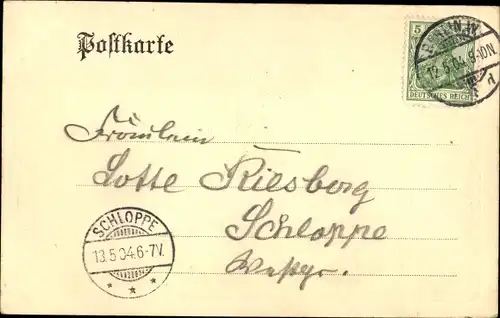 Postkarte
5
DEUTSCHES REICH
BERLIN.W.
12.5.04.9-10N.
Fräulein
Lotte Riesberg
Schloppe
Westpr.
SCHLOPPE
13.5.04.6-7V.
* * *